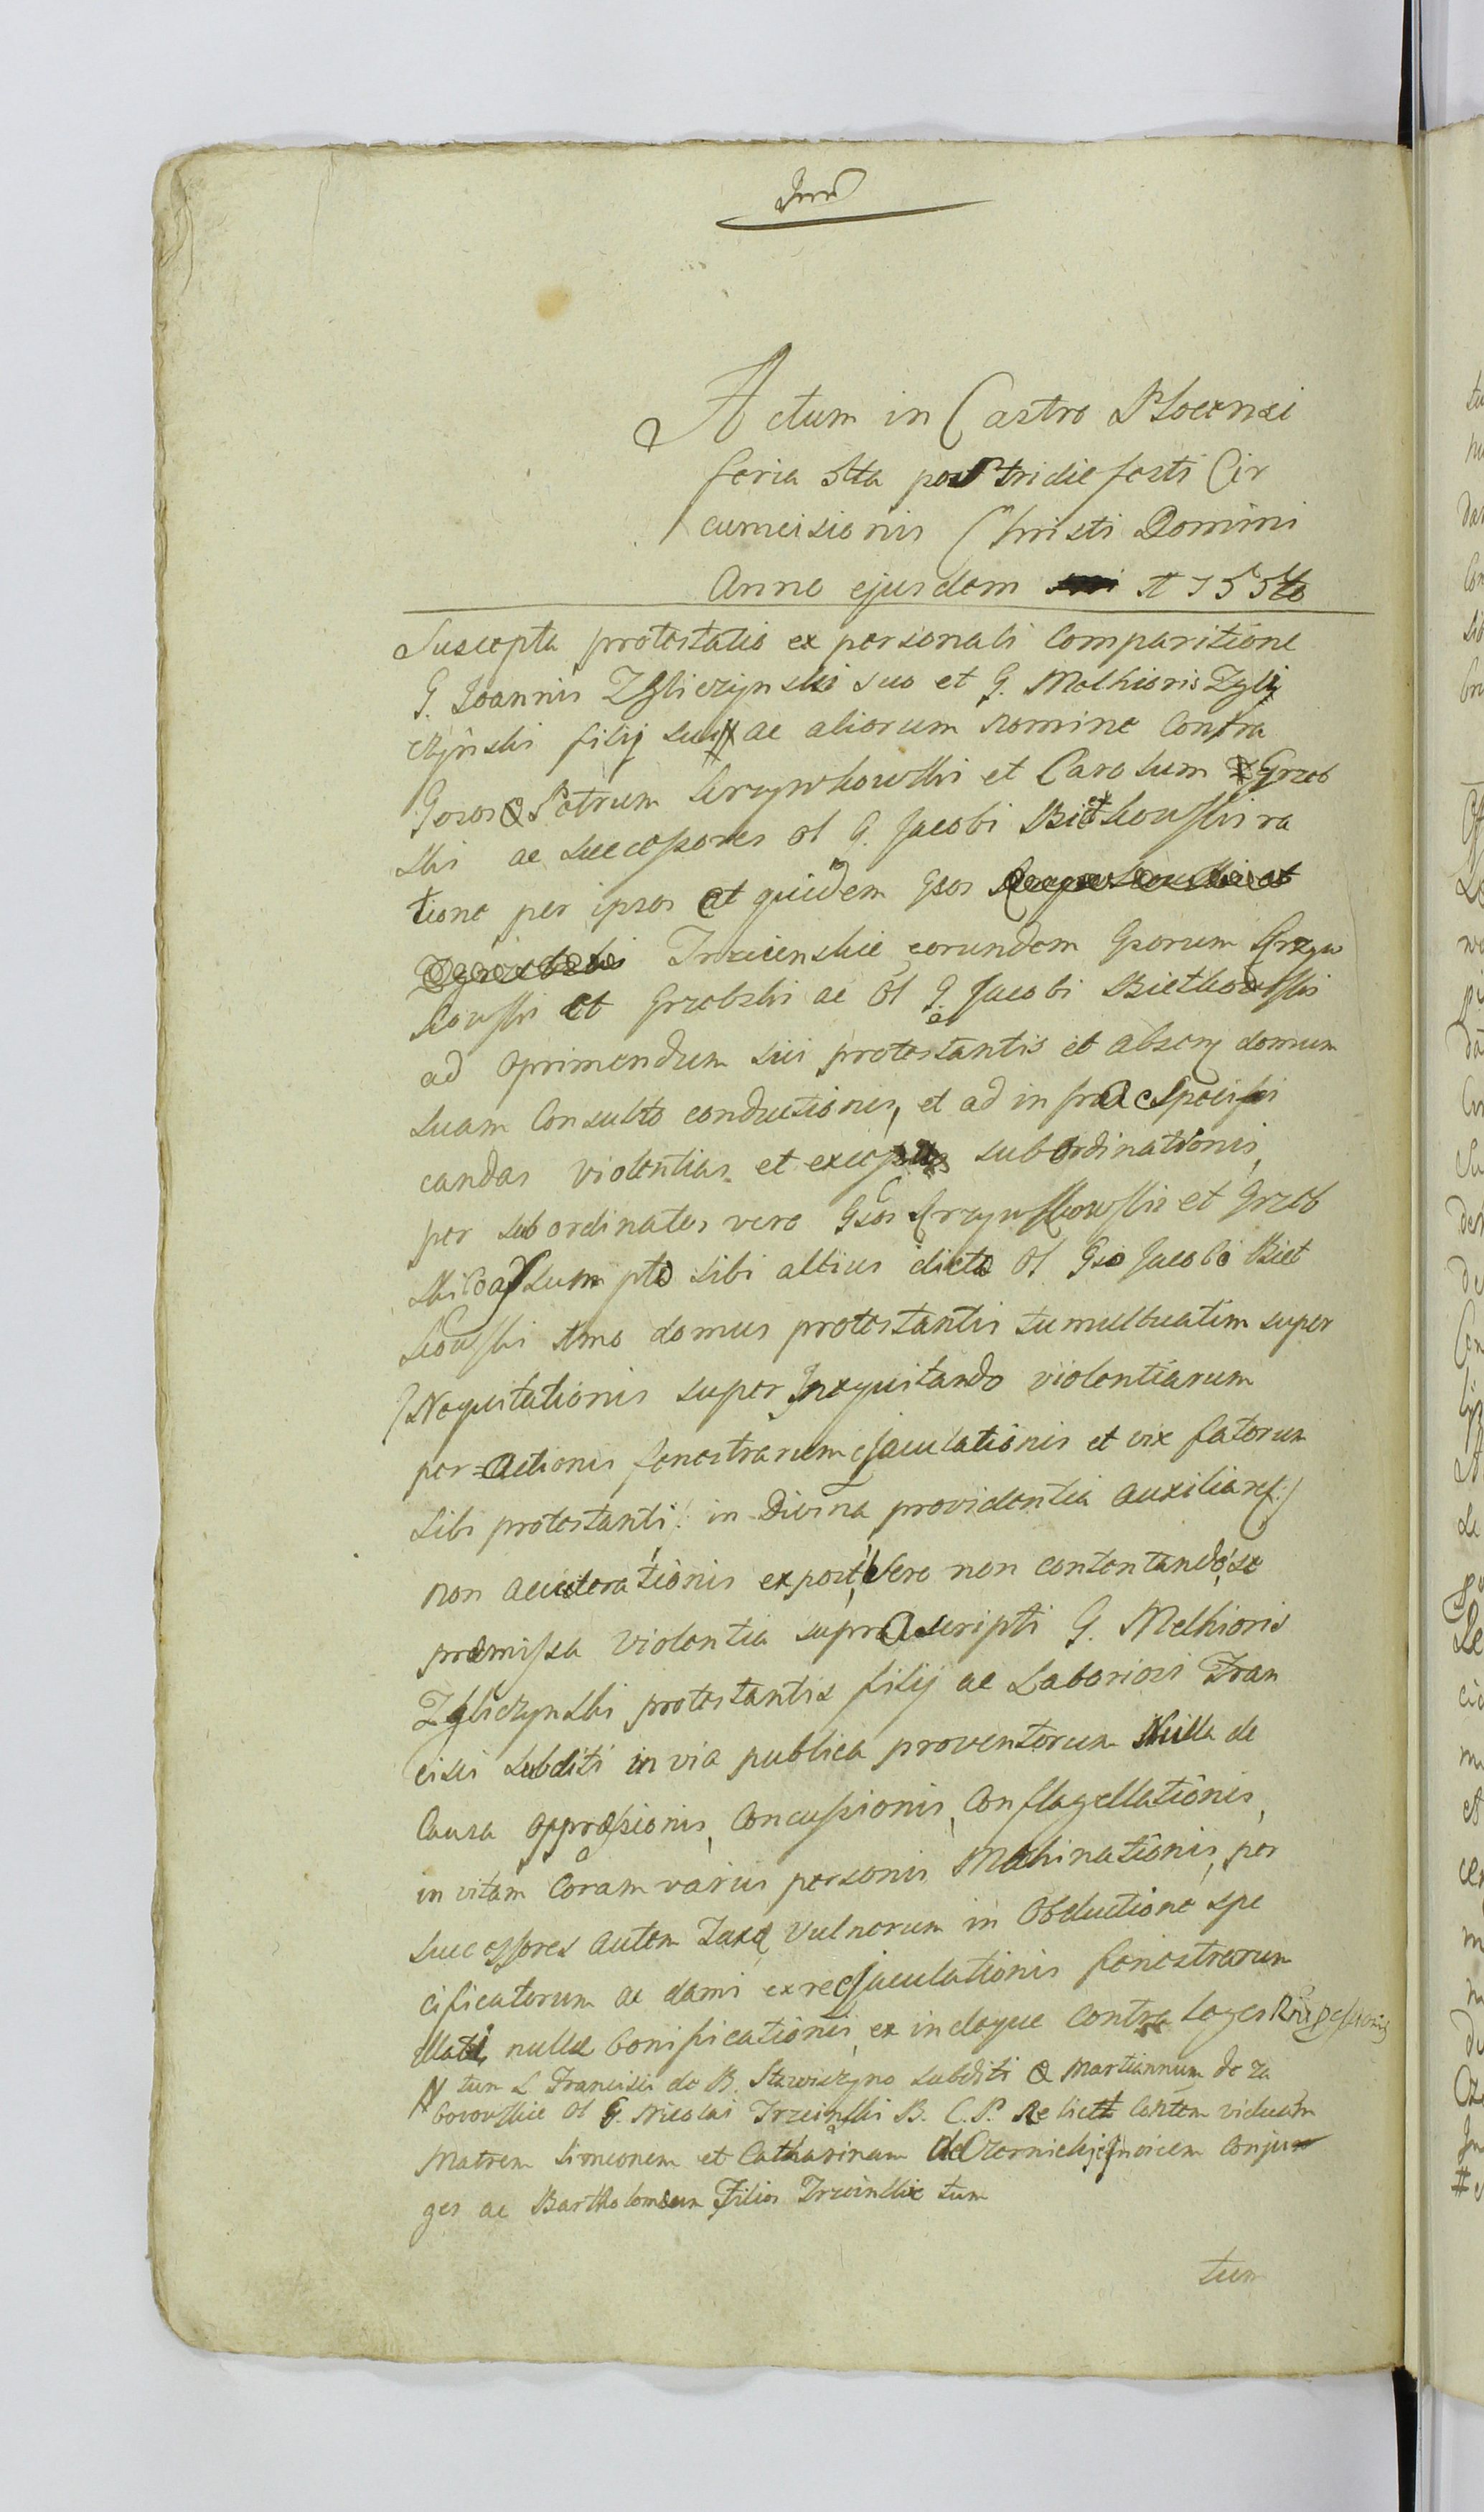 Actum in Castro Plocensi
feria 5ta postridie festi Cir
cumcisionis Christi Domini
Anno ejusdem 1755to
Suscepta protestatio ex personali Comparitione
G. Joannis Zgliczynski suo et G. Melhioris Zgli
czynski filij sui # ac aliorum nomine Contra
Gosos Petrum Krzywkowski et Carolum Grzeb
ski ac successores Ol G. Jacobi Bietkowski ra
tione per ipsos et quidem Gsos
Trzcienskie eorundem Gsorum Krzyw
kowski et Grzebski ac Ol G. Jacobi Bietkowski
ad oprimendum sui protestantis et absenz domum
suam Consulto conductionis, et ad infra Specifi
candas violentias et subordinationis,
per subordinatos vero Gsos Krzywkowski et Grzeb
ski coassumpto sibi altius dicto Ol Gso Jacobo Biet
kowski 1mo domus protestantis tumultuatim super
INequitationis super Inequitando violentiarum
per=actionis fenestrarum ejaculationis et vix fatorum
sibi protestanti /: in Divina providentia auxiliaret :/
non accelerationis expost Vero non contentando se
præmissa violentia supra scripti G. Melhioris
Zgliczynski protestantis filij ac Laboriosi Fran
cisci subditi in via publica proventorum Nulla de
Causa oppræssionis, Concussionis, Conflagellationis,
in vitam Coram varijs personis Machinationis, per
successores autem Taxæ vulnerum in Obductione spe
cificatorum ac damni ex reejaculationis fenestrarum
illati nullæ bonificationis, ex indeque contra leges
# tum L Francisci de B. Stawiszyno subditi & Martiannum de Za
borowskie Ol G. Nicolai Trzcinski B. C. P. Relictt Contem viduam
Matrem Simeonem et Catharinam de Czernickie Invicem Conju
ges ac Bartholomæum Filios Trzcinskie tum
tum